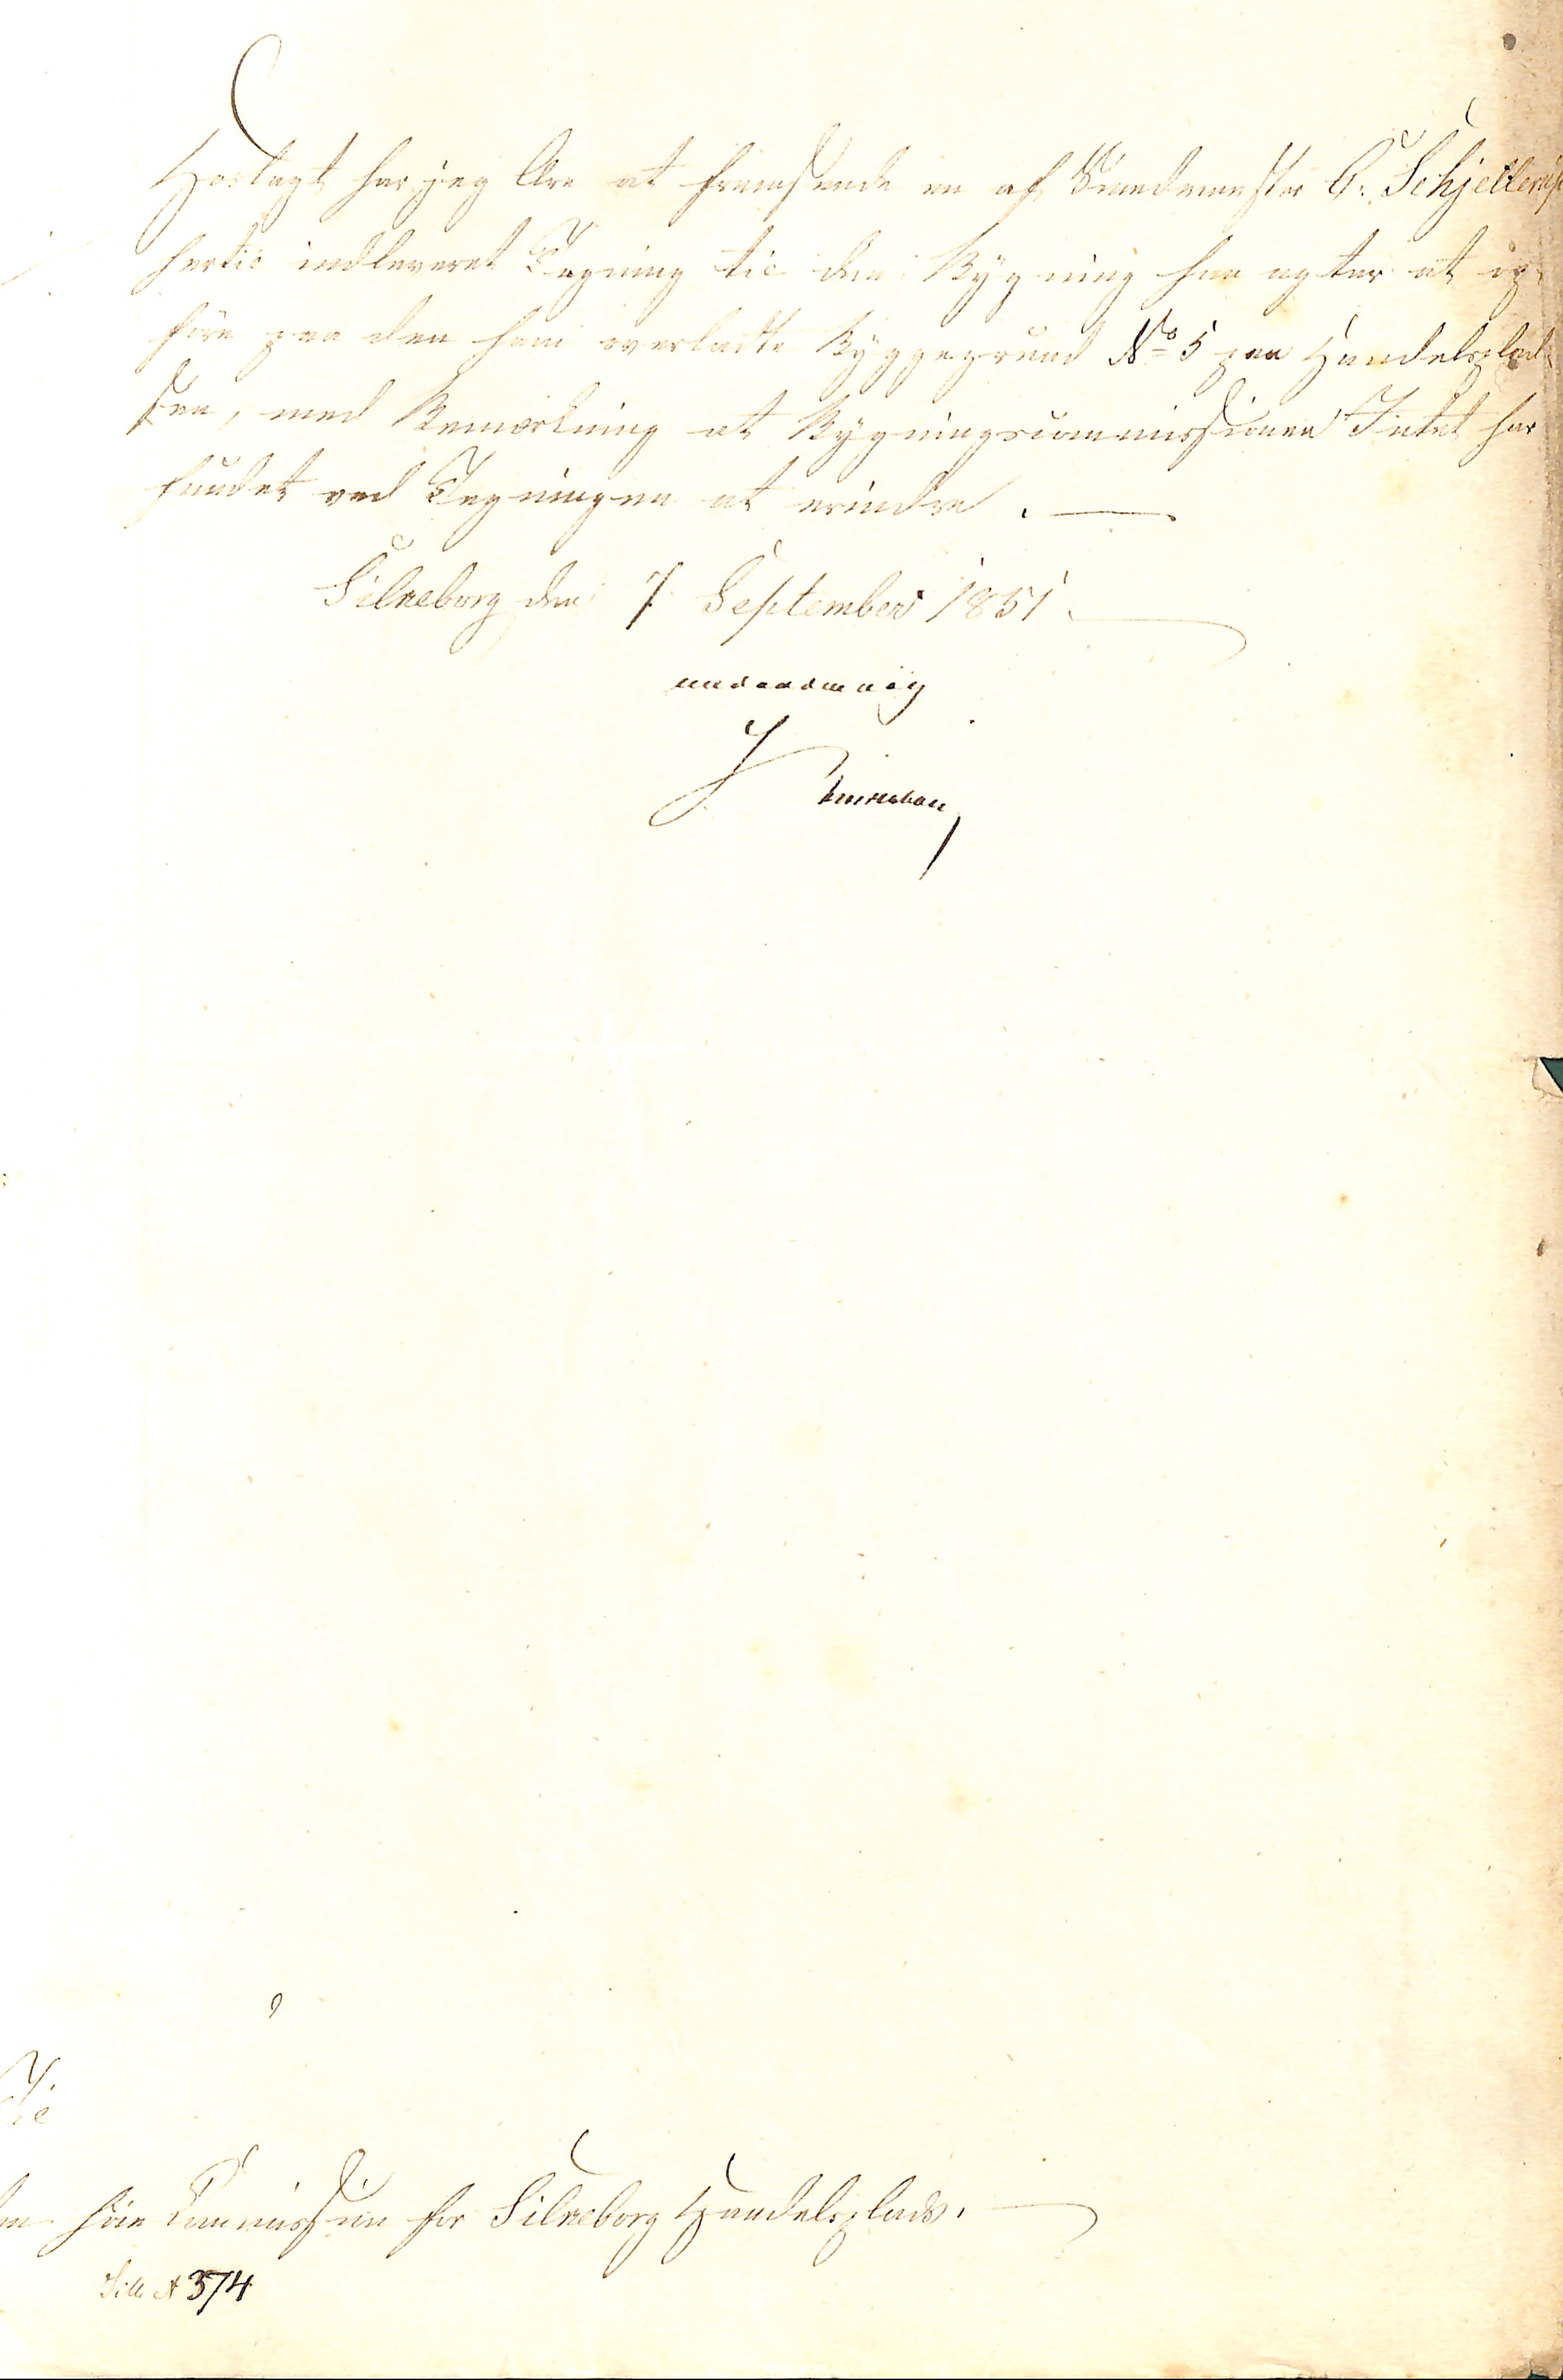 Hoslagt har jeg Ære at fremsende en af Smedmester C. Schjellerup
hertil indleveret Tegning til den Bygning han agter at op-
føre paa den ham overladte Byggegrund No 5 paa Handelsplad-
sen, med Bemærkning at Bygningscommissionen Intet har
fundet ved Tegningen at erindre. —
Silkeborg den 7 September 1851.
underdanig
Til
den høie Commission for Silkeborg Handelsplads.
Silk A 374